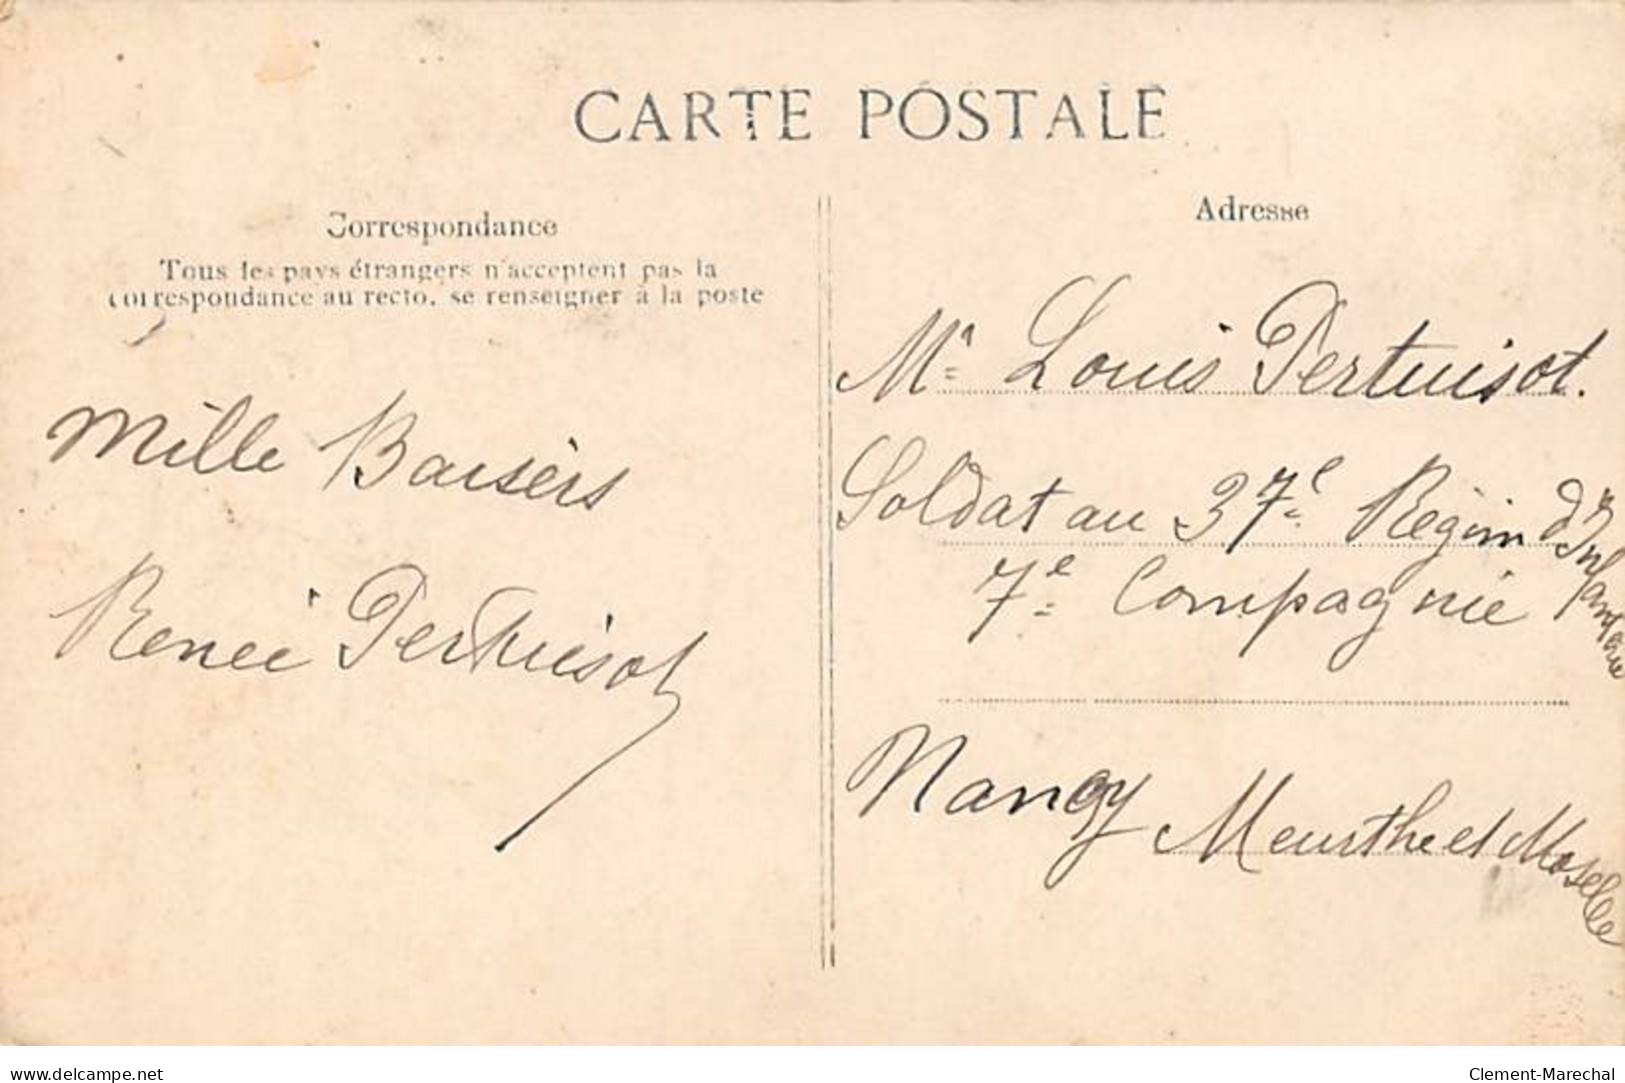 CARTE POSTALE
Correspondance
Tous les pays étrangers n'acceptent pas la
correspondance au recto, se renseigner à la poste
Mille Baisèrs
Renée Pertuisot
Adresse
Mr Louis Pertuisot.
Soldat au 37e Régim d'Infanterie
7e Compagnie
Nancy Meurthe et Moselle
www.delcampe.net
Clement-Marechal